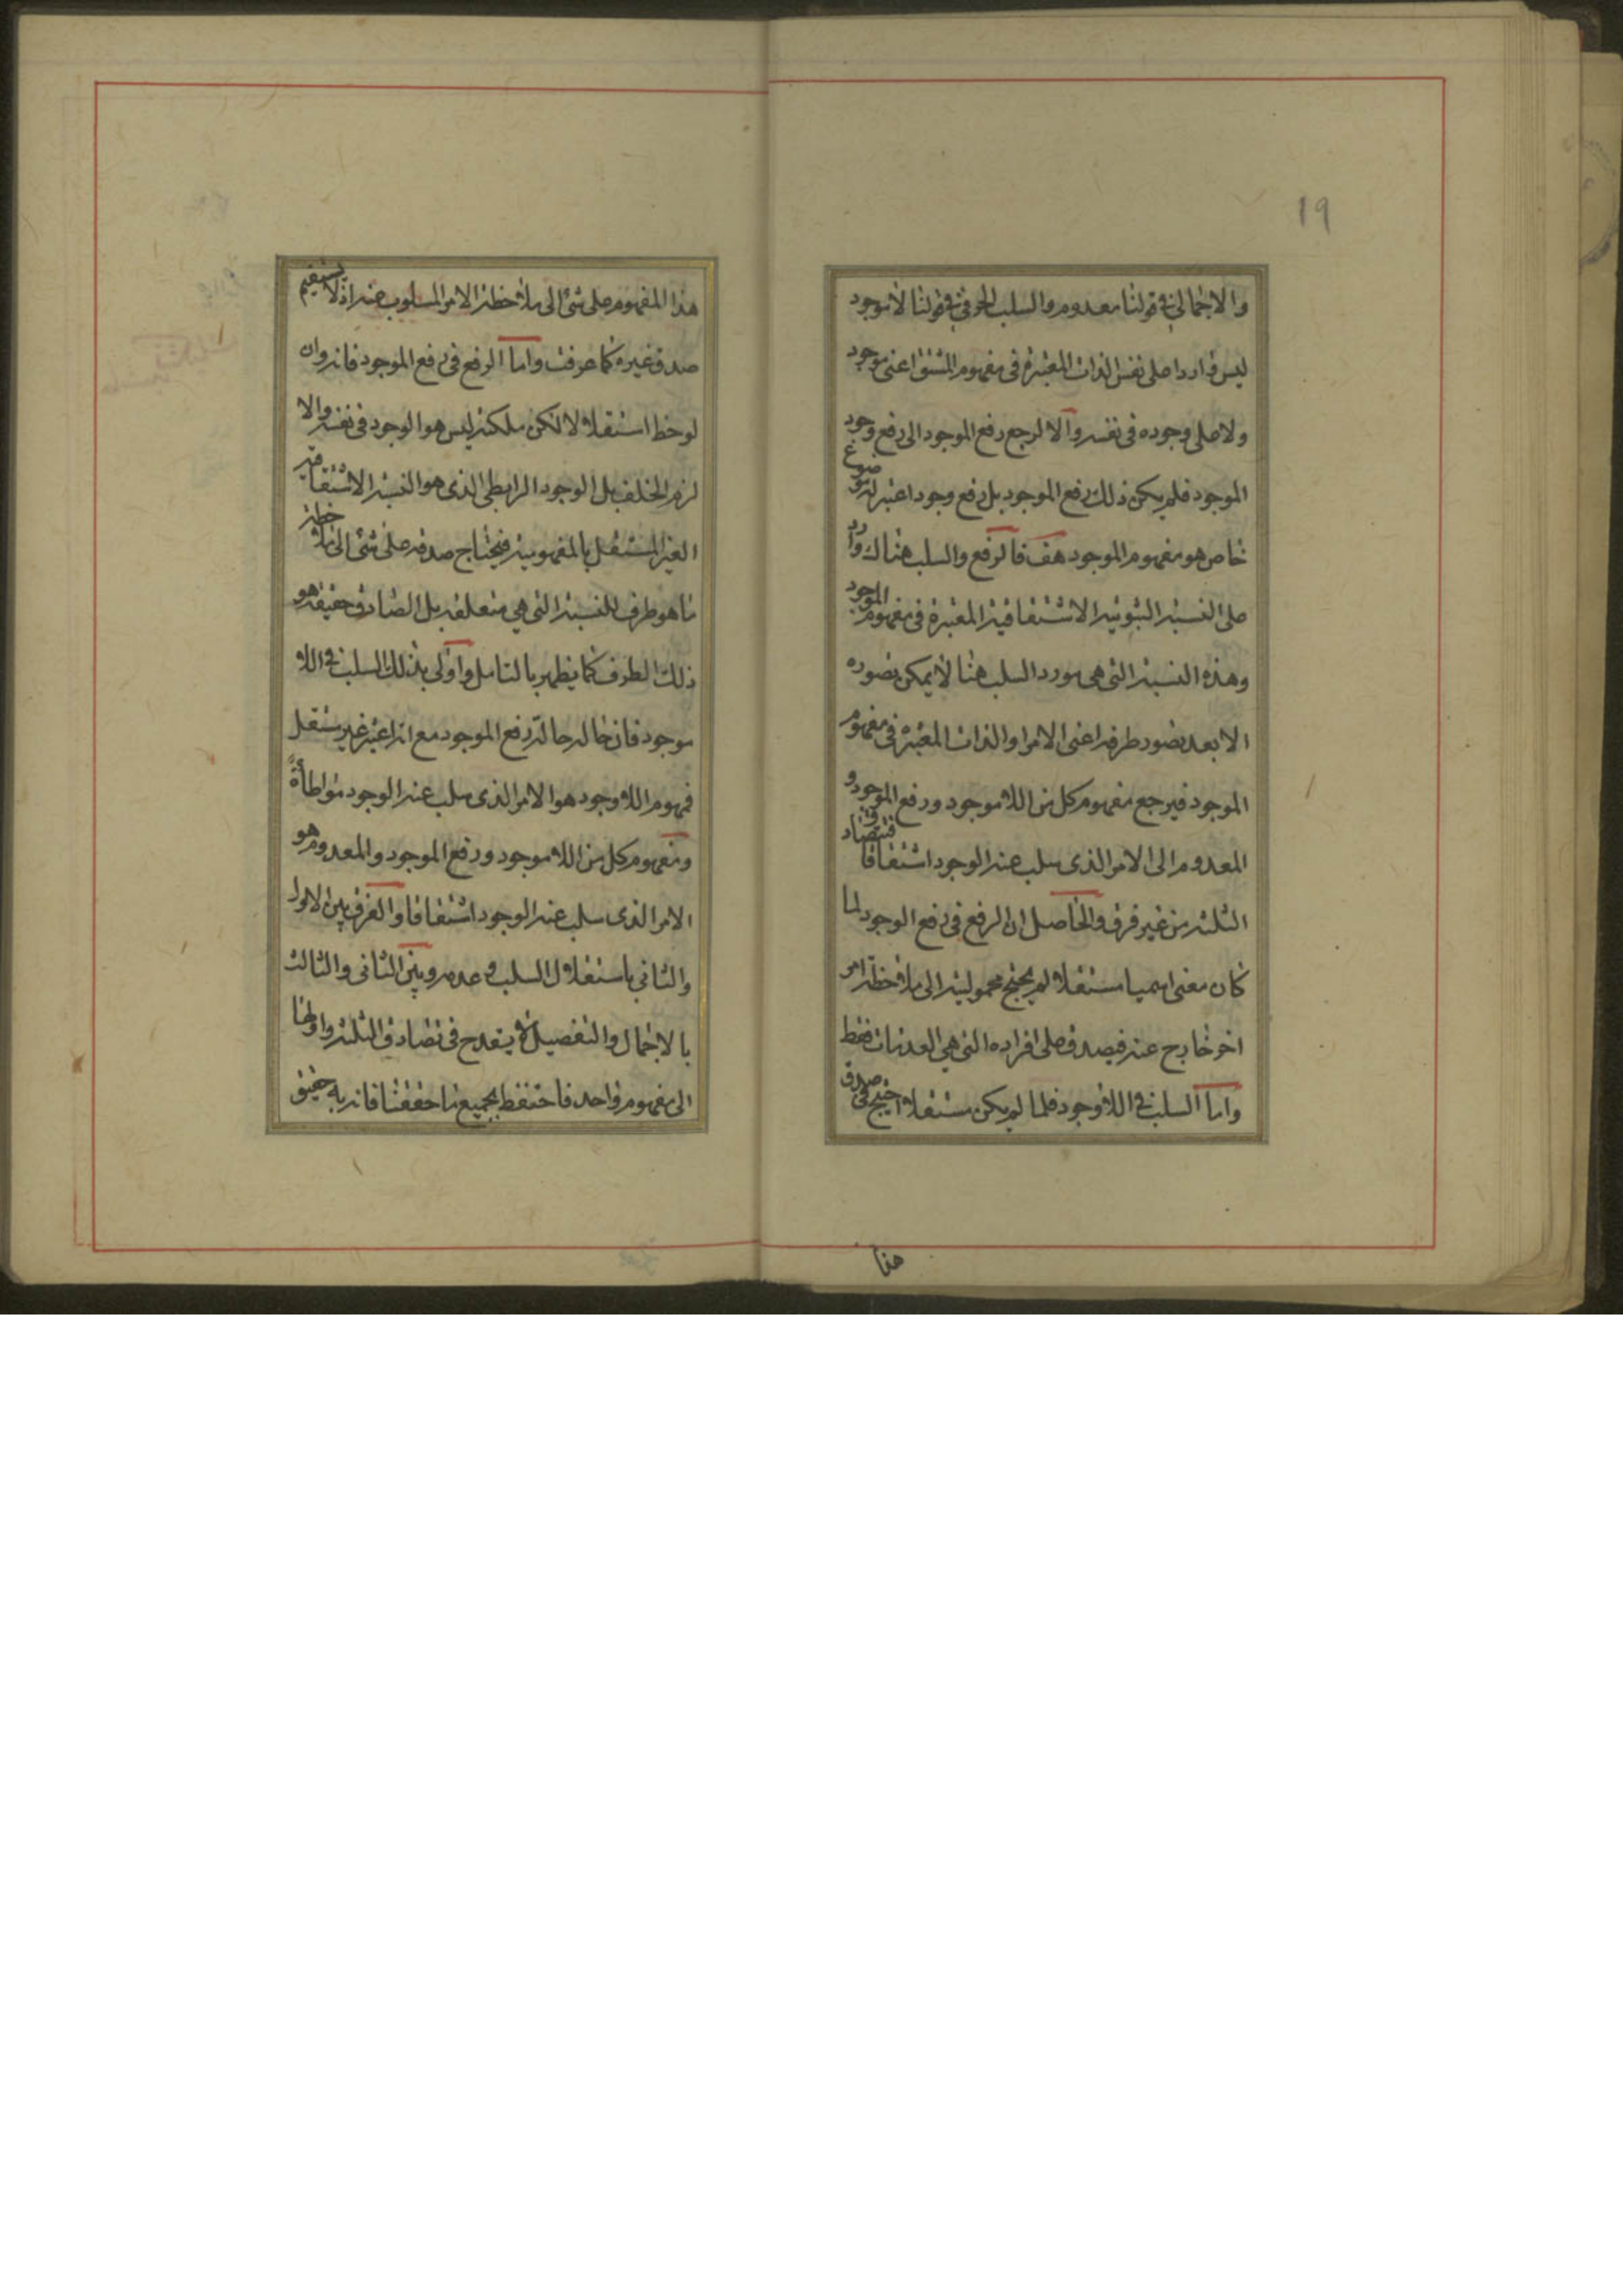 19
والاجمالي في قولنا معدوم والسلب الحرفي في قولنا لا موجود
ليس واردا على نفس الذات المعتبرة في مفهوم المشتق اعني موجود
ولا على وجوده في نفسه والا لرجع رفع الموجود الى رفع وجود
الموجود فلم يكن ذلك رفع الموجود بل رفع وجود اعتبر لموضوع
خاص هو مفهوم الموجود هف فالرفع والسلب هناك وارد
على النسبة الثبوتية الاشتقاقية المعتبرة في مفهوم الموجود
وهذه النسبة التي هي مورد السلب هنا لا يمكن تصوره
الا بعد تصور طرفه اعني الامر او الذات المعتبرة في مفهوم
الموجود فيرجع مفهوم كل من اللاموجود ورفع الموجود و
المعدوم الى الامر الذي سلب عنه الوجود اشتقاقا فتتصادق
الثلثة من غير فرق والحاصل ان الرفع في رفع الوجود لما
كان معنى اسميا مستقلا لم يحتج محموليته الى ملاحظة امر
اخر خارج عنه فيصدق على افراده التي هي العدمات فقط
واما السلب في اللاوجود فلما لم يكن مستقلا احتيج في صدق
هذا
هذا المفهوم على شئ الى ملاحظة الامر المسلوب عنه اذ لا يستقيم
صدق غيره كما عرفت واما الرفع في رفع الموجود فانه وان
لوحظ استقلالا لكن ملكته ليس هو الوجود في نفسه والا
لزم الخلف بل الوجود الرابطي الذي هو النسبة الاشتقاقية
الغير المستقل بالمفهومية فيحتاج صدقه على شئ الى ملاحظة
ما هو طرف للنسبة التي هي متعلقه بل الصادق حقيقة هو
ذلك الطرف كما يظهر بالتامل واولى بذلك السلب في اللا
موجود فان حاله حالة رفع الموجود مع انه اعتبر غير مستقل
فمفهوم اللاوجود هو الامر الذي سلب عنه الوجود مواطأة
ومفهوم كل من اللاموجود ورفع الموجود والمعدوم هو
الامر الذي سلب عنه الوجود اشتقاقا والفرق بين الاول
والثاني باستقلال السلب وعدمه وبين الثاني والثالث
بالاجمال والتفصيل لا يقدح في تصادق الثلثة واولها
الى مفهوم واحد فاحتفظ بجميع ما حققنا فانه به حقيق